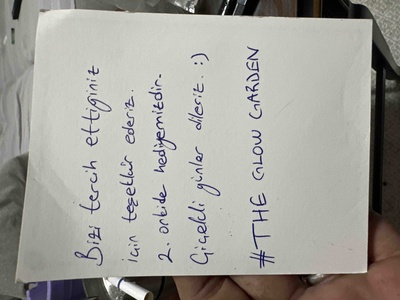 Bizi tercih ettiğiniz
için teşekkür ederiz.
2. orkide hediyemizdir.
Çiçekli günler dileriz. :)
#THE GLOW GARDEN